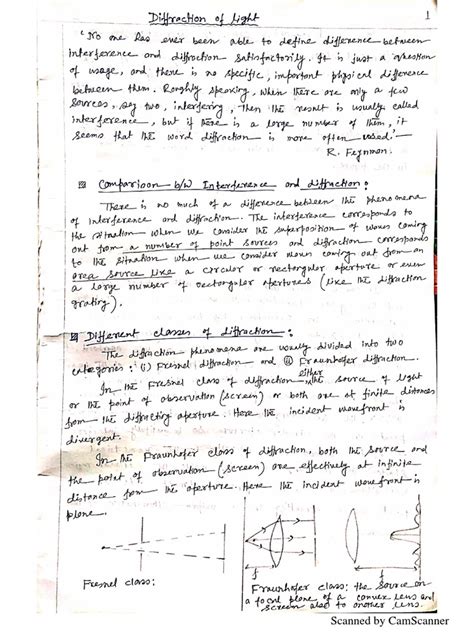 Diffraction of light
1
'No one has ever been able to define difference between
interference and diffraction satisfactorily. It is just a question
of usage, and there is no specific, important physical difference
between them. Roughly speaking, when there are only a few
sources, say two, interfering, then the result is usually called
interference, but if there is a large number of them, it
seems that the word diffraction is more often used.'
R. Feynman.
Comparison b/w Interference and diffraction:
There is no much of a difference between the phenomena
of interference and diffraction. The interference corresponds to
the situation when we consider the superposition of waves coming
out from a number of point sources and diffraction corresponds
to the situation when we consider waves coming out from an
area source like a circular or rectangular aperture or even
a large number of rectangular apertures (like the diffraction
grating).
Different classes of diffraction:
The diffraction phenomena are usually divided into two
categories: (i) Fresnel diffraction and (ii) Fraunhofer diffraction.
In the Fresnel class of diffraction, either the source of light
or the point of observation (screen) or both are at finite distances
from the diffracting aperture. Here the incident wavefront is
divergent.
In the Fraunhofer class of diffraction, both the source and
the point of observation (screen) are effectively at infinite
distance from the aperture. Here the incident wavefront is
plane.
f
f
Fresnel class:
Fraunhofer class: the source on
a focal plane of a convex lens and
screen also to another lens.
Scanned by CamScanner